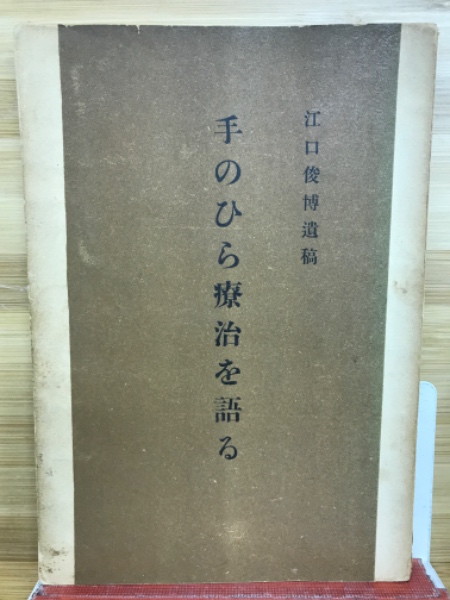 江口俊博遺稿
手のひら療治を語る